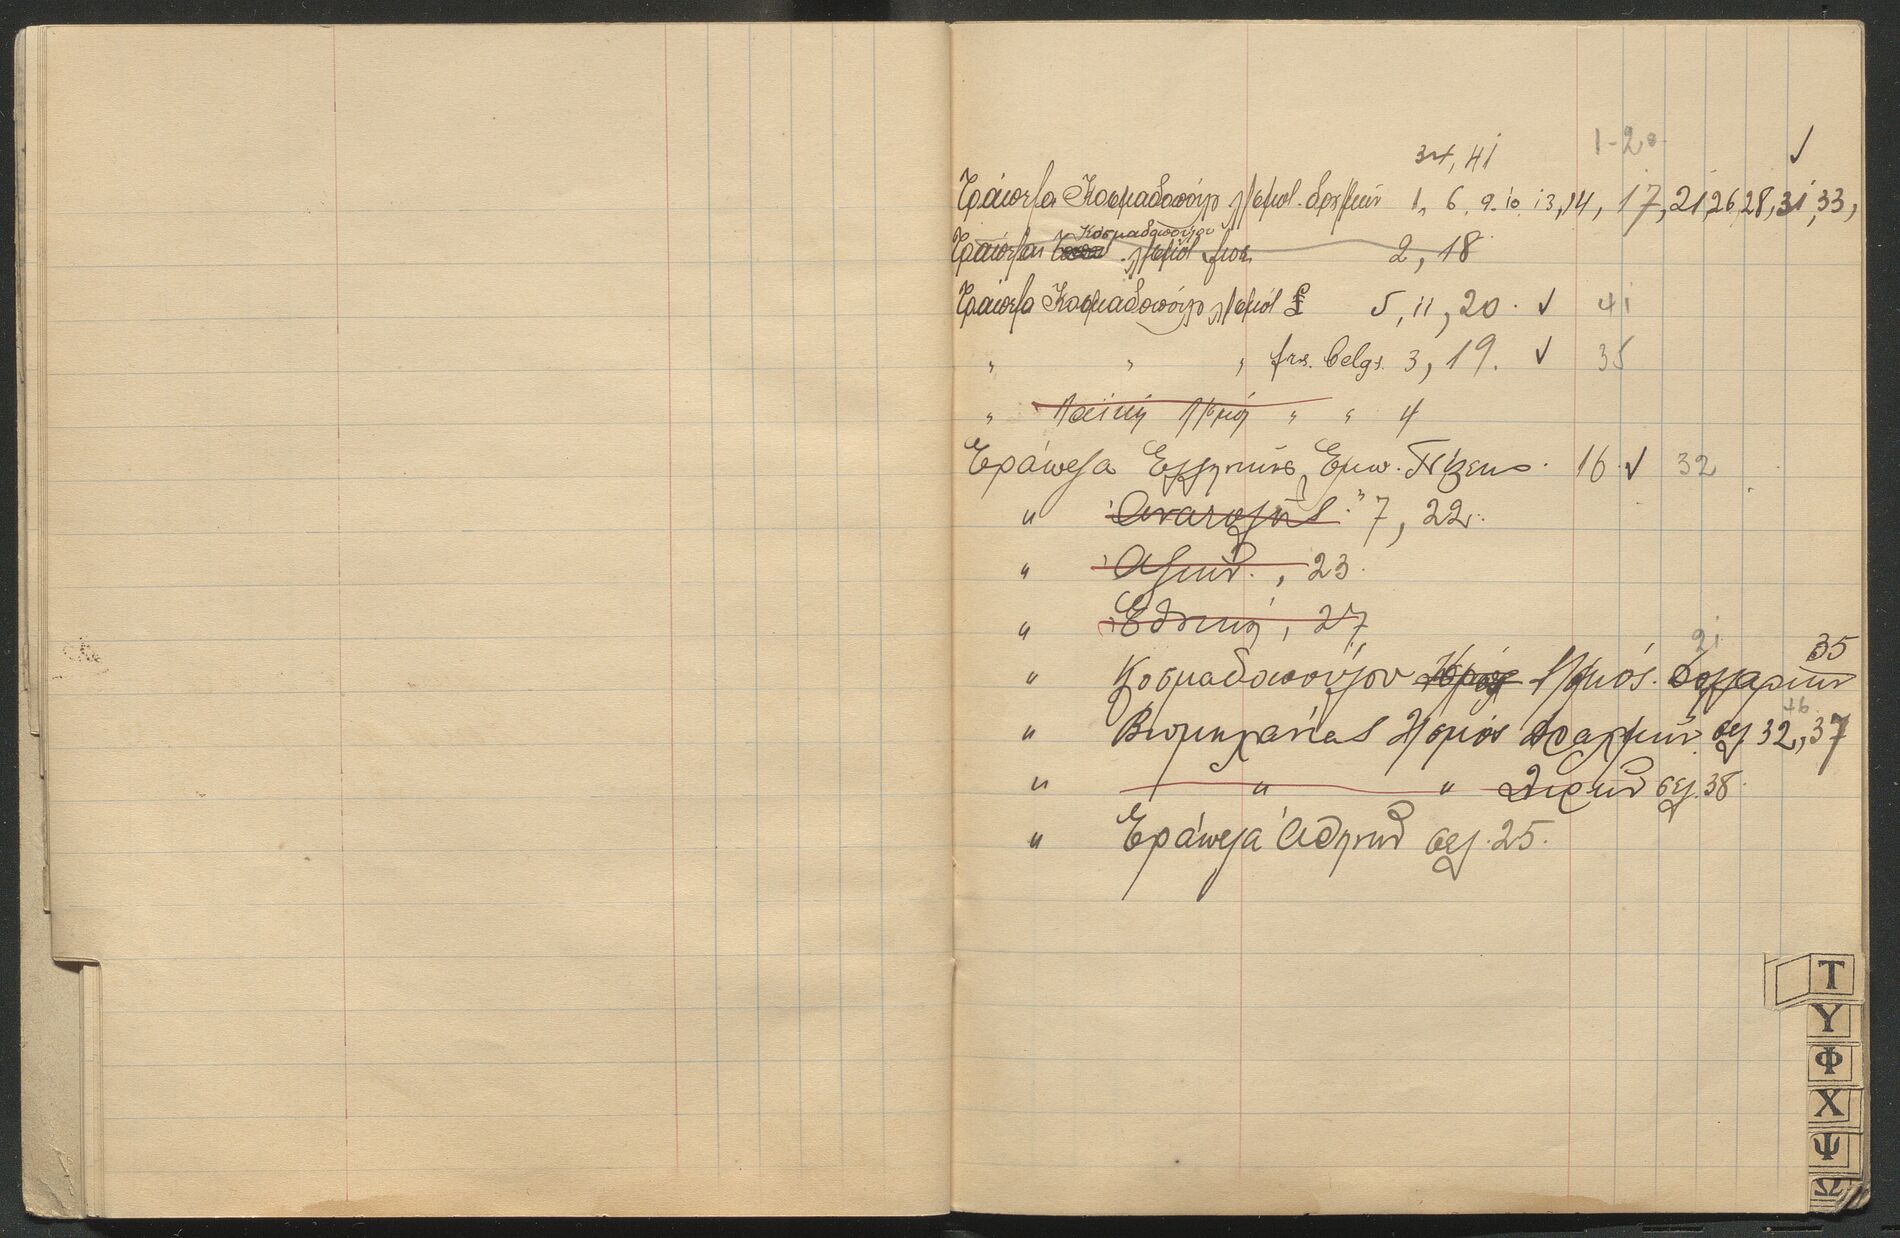 1-20 ✓
34, 41
Τράπεζα Κοσμαδοπούλου λ/σμος δραχμών 1, 6, 9, 10, 13, 14, 17, 21, 26, 28, 31, 33,
Κοσμαδοπούλου
Τράπεζα λ/σμός 2, 18
Τράπεζα Κοσμαδοπούλου λ/σμός £ 5, 11, 20. ✓ 41
" " " frs. belgs. 3, 19. ✓ 35
" Λαϊκή λ/σμός " " 4
Τράπεζα Ελληνικής Εμπ. Πίστεως. 16 ✓ 32
" Ανατολής " 7, 22.
" Αθηνών, 23.
" Εθνική, 27
21 35
" Κοσμαδοπούλου λ/σμός. δολλαρίων
46
" Βιομηχανίας λ/σμός δραχμών σελ 32, 37
" " " Λιρών σελ. 38
" Τράπεζα Αθηνών σελ. 25.
Τ
Υ
Φ
Χ
Ψ
Ω